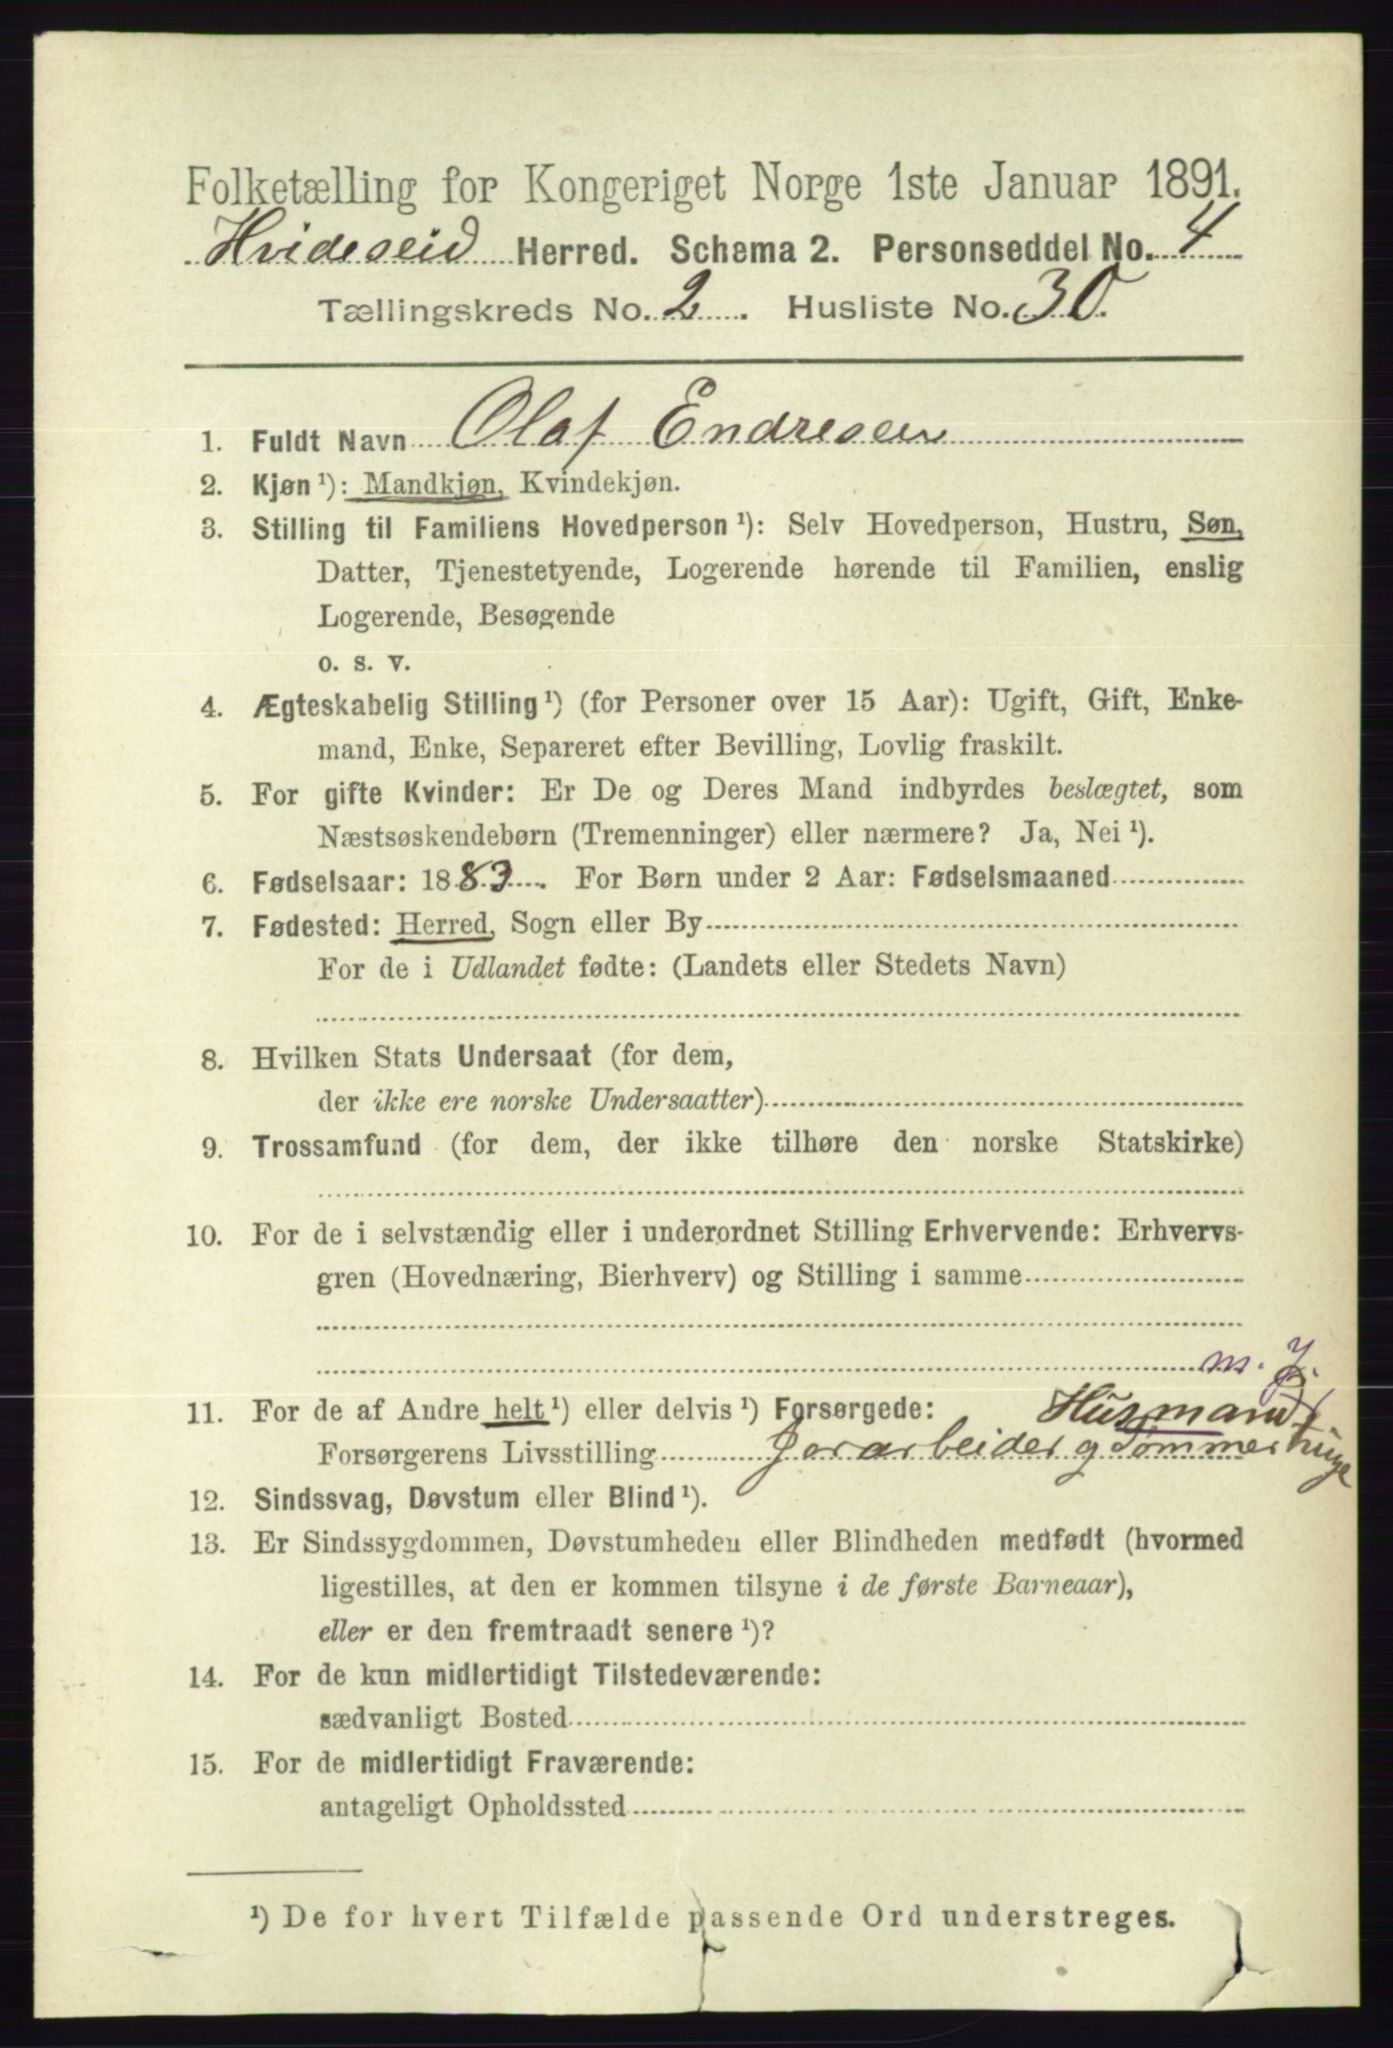 Folketælling for Kongeriget Norge 1ste Januar 1891.
Hvideseid Herred. Schema 2. Personseddel No. 4
Tællingskreds No. 2. Husliste No. 30.
1. Fuldt Navn Olaf Endresen
2. Kjøn ¹): Mandkjøn, Kvindekjøn.
3. Stilling til Familiens Hovedperson ¹): Selv Hovedperson, Hustru, Søn,
Datter, Tjenestetyende, Logerende hørende til Familien, enslig
Logerende, Besøgende
o. s. v.
4. Ægteskabelig Stilling ¹) (for Personer over 15 Aar): Ugift, Gift, Enke-
mand, Enke, Separeret efter Bevilling, Lovlig fraskilt.
5. For gifte Kvinder: Er De og Deres Mand indbyrdes beslægtet, som
Næstsøskendebørn (Tremenninger) eller nærmere? Ja, Nei ¹).
6. Fødselsaar: 1883. For Børn under 2 Aar: Fødselsmaaned
7. Fødested: Herred, Sogn eller By
For de i Udlandet fødte: (Landets eller Stedets Navn)
8. Hvilken Stats Undersaat (for dem,
der ikke ere norske Undersaatter)
9. Trossamfund (for dem, der ikke tilhøre den norske Statskirke)
10. For de i selvstændig eller i underordnet Stilling Erhvervende: Erhvervs-
gren (Hovednæring, Bierhverv) og Stilling i samme
m. J.
11. For de af Andre helt ¹) eller delvis ¹) Forsørgede: Husmand
Forsørgerens Livsstilling Jorarbeider g Tømmer
12. Sindssvag, Døvstum eller Blind ¹).
13. Er Sindssygdommen, Døvstumheden eller Blindheden medfødt (hvormed
ligestilles, at den er kommen tilsyne i de første Barneaar),
eller er den fremtraadt senere ¹)?
14. For de kun midlertidigt Tilstedeværende:
sædvanligt Bosted
15. For de midlertidigt Fraværende:
antageligt Opholdssted
¹) De for hvert Tilfælde passende Ord understreges.